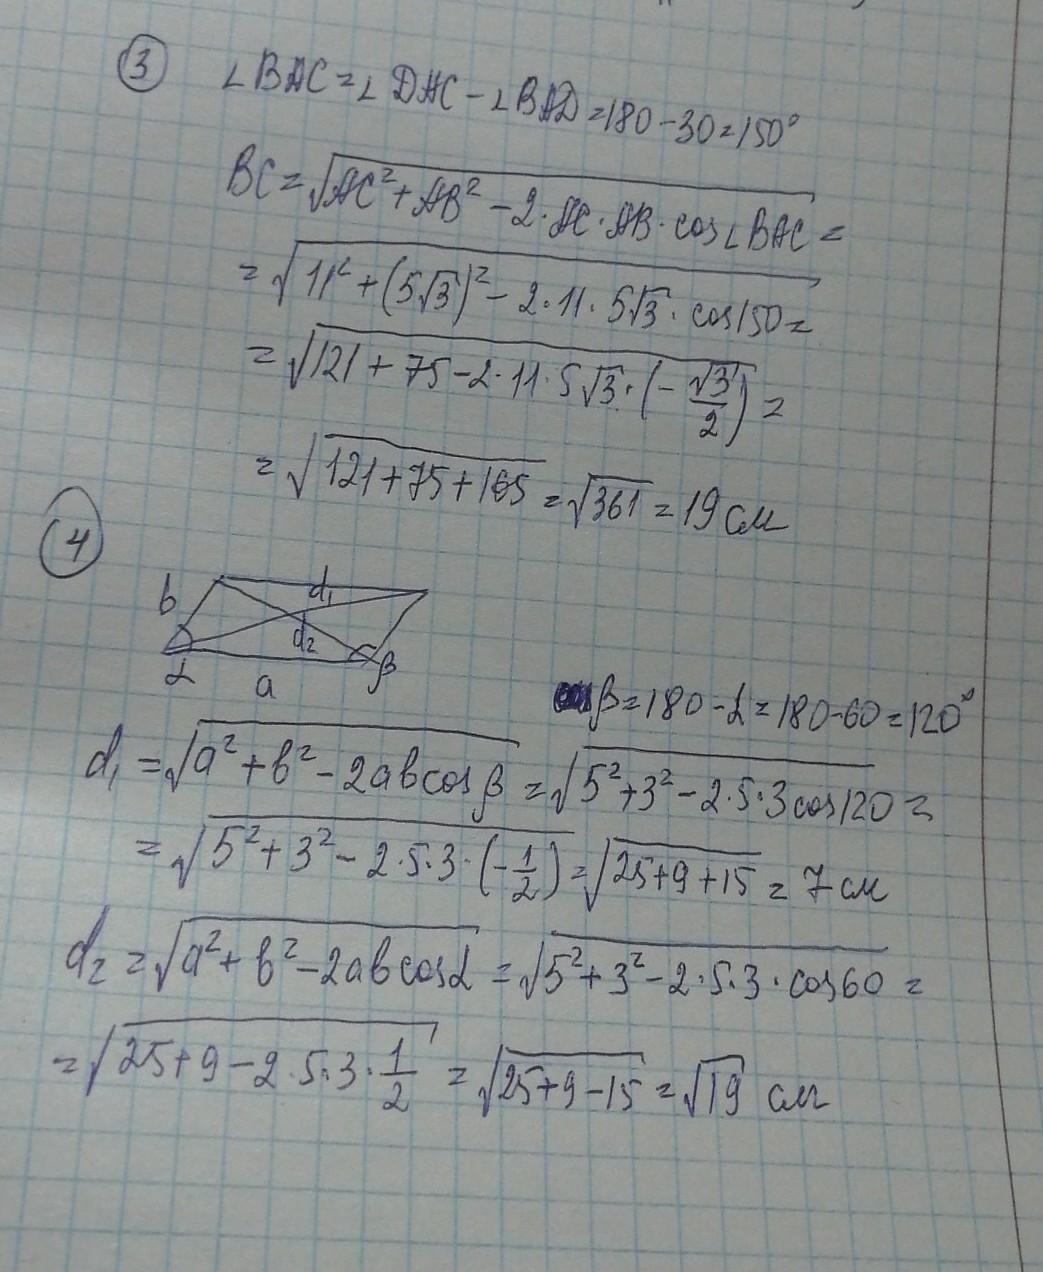 ③ ∠BAC=∠DAC-∠BAD=180-30=150°
BC=√(AC²+AB²-2·AC·AB·cos∠BAC)=
=√(11²+(5√3)²-2·11·5√3·cos150)=
=√(121+75-2·11·5√3·(-√3/2))=
=√(121+75+165)=√361=19см
④
b d₁
d₂
α a β
β=180-α=180-60=120°
d₁=√(a²+b²-2abcosβ)=√(5²+3²-2·5·3cos120)=
=√(5²+3²-2·5·3·(-1/2))=√(25+9+15)=7см
d₂=√(a²+b²-2abcosα)=√(5²+3²-2·5·3·cos60)=
=√(25+9-2·5·3·1/2)=√(25+9-15)=√19 см